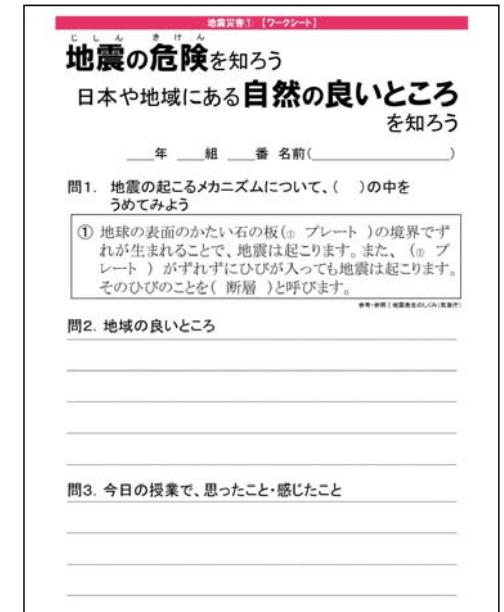 地震災害① 【ワークシート】
じしん きけん
地震の危険を知ろう
日本や地域にある自然の良いところ
を知ろう
___年 ___組 ___番 名前(__________________)
問1. 地震の起こるメカニズムについて、( )の中を
うめてみよう
① 地球の表面のかたい石の板(① プレート )の境界でず
れが生まれることで、地震は起こります。また、 (① プ
レート ) がずれずにひびが入っても地震は起こります。
そのひびのことを( 断層 )と呼びます。
参考・参照 | 地震発生のしくみ(気象庁)
問2. 地域の良いところ
問3. 今日の授業で、思ったこと・感じたこと